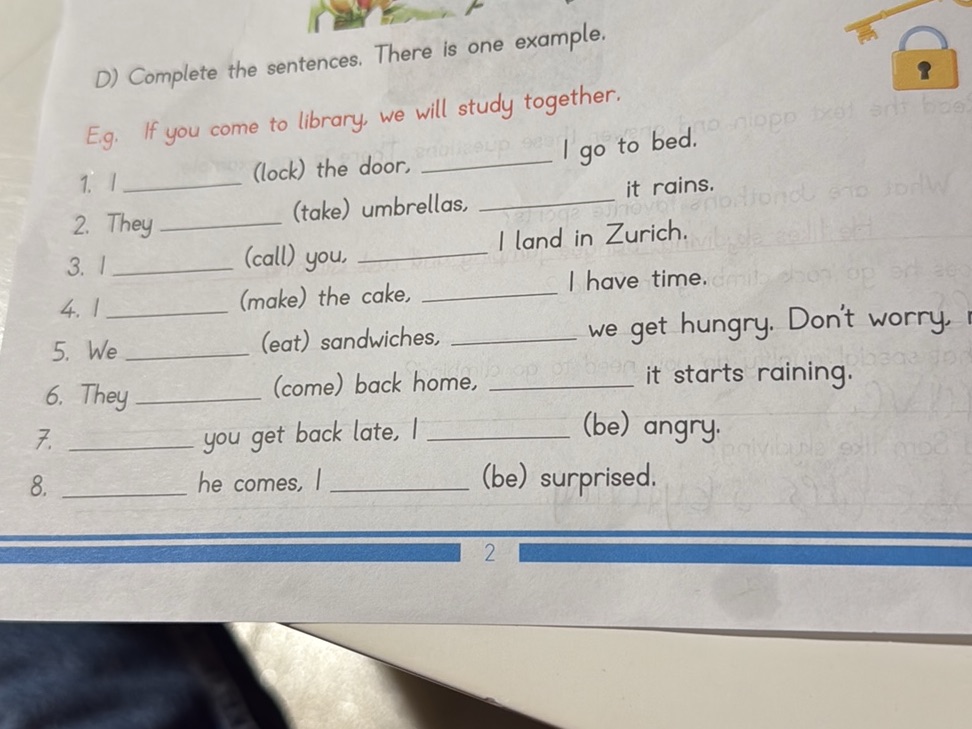 D) Complete the sentences. There is one example.
E.g. If you come to library, we will study together.
1. I __________ (lock) the door, __________ I go to bed.
2. They __________ (take) umbrellas, __________ it rains.
3. I __________ (call) you, __________ I land in Zurich.
4. I __________ (make) the cake, __________ I have time.
5. We __________ (eat) sandwiches, __________ we get hungry. Don't worry,
6. They __________ (come) back home, __________ it starts raining.
7. __________ you get back late, I __________ (be) angry.
8. __________ he comes, I __________ (be) surprised.
2